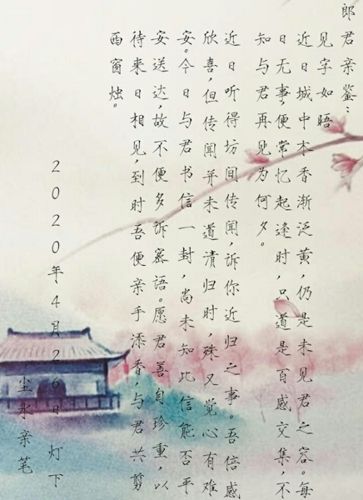 郎君亲鉴:
见字如晤
近日城中木香渐泛黄,仍是未见君之容。每
日无事,便常忆起逢时,只道是百感交集,不
知与君再见为何夕。
近日听得坊间传闻,诉你近归之事。吾倍感
欣喜,但传闻并未道清归时,殊又觉心有难
安。今日与君书信一封,尚未知此信能否平
安送达,故不便多诉密语。愿君善自珍重,以
待来日相见,到时吾便亲手添香,与君共剪
西窗烛。
2020年4月26日灯下
尘水亲笔